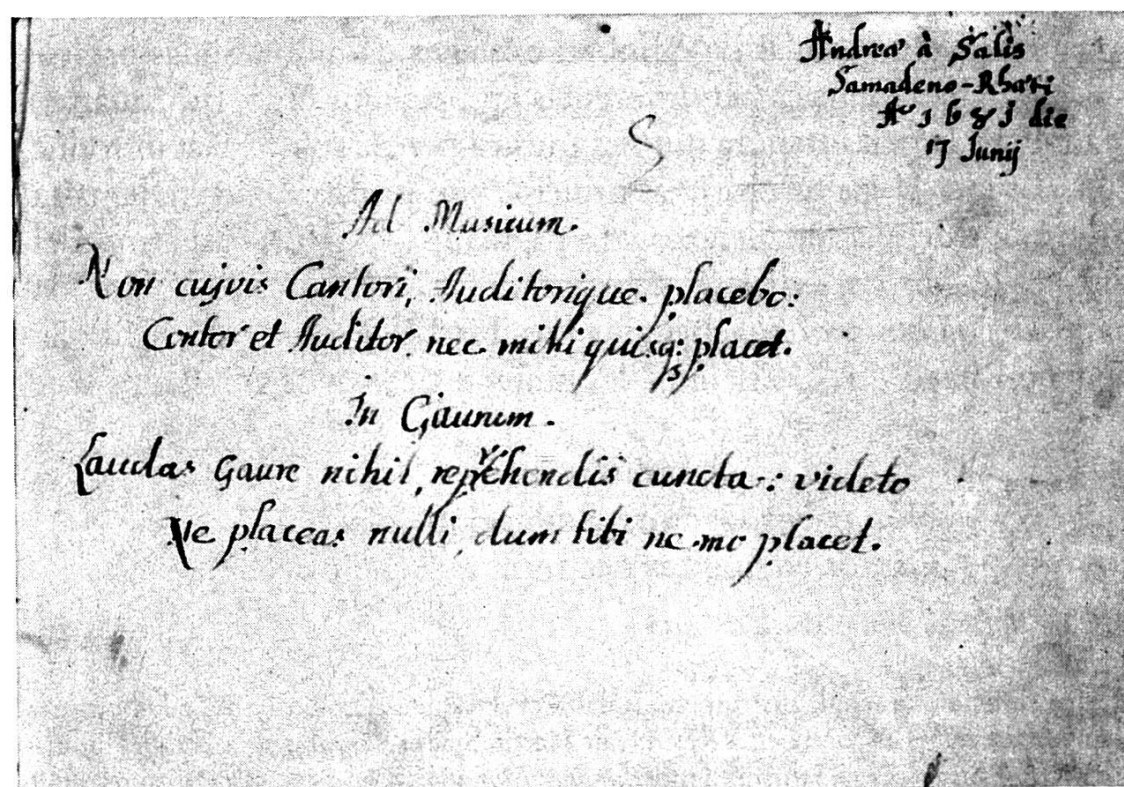 Andreæ à Salis
Samadeno-Rhæti
Aº 1681 die
17 Junij
Ad Musicum.
Non cujvis Cantori, Auditorique placebo:
Cantor et Auditor nec mihi quisq; placet.
In Gaurum.
Laudas Gaure nihil, reprehendis cuncta: videto
Ne placeas nulli, dum tibi nemo placet.